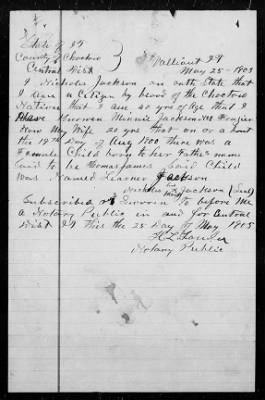 State of I.T.
County of Choctaw
Central Dist
Valliant I.T.
May 25 - 1905
I Nicholas Jackson on oath State that
I am a Citizen by blood of the Choctaw
Nation that I am 50 yrs of Age that I
Have Known Minnie Jackson nee Frazier
Now My Wife 20 yrs that on or about
the 19th Day of Aug 1900 there was a
Female Child born to her Father
Said to be Thomas James Said Child
was Named Learner Jackson
Nicholas Jackson (Seal)
Subscribed & Sworn to before Me
a Notary Public in and for Central
Dist I.T. this the 25 Day of May 1905
Notary Public